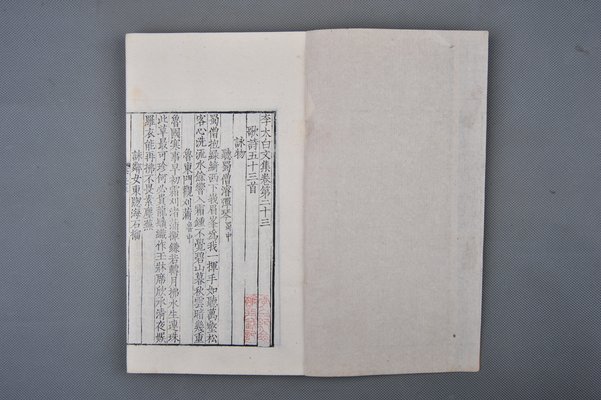 李太白文集卷第二十三
歌詩五十三首
詠物
聽蜀僧濬彈琴蜀中
蜀僧抱綠綺西下我眉峯爲我一揮手如聽萬壑松
客心洗流水餘響入霜鍾不覺碧山暮秋雲暗幾重
魯東門觀刈蒲魯中
魯國寒事早初霜刈渚蒲揮鎌若轉月拂水生連珠
此草最可珍何必貴龍鬚織作玉牀席欣承清夜娛
羅衣能再拂不畏素塵蕪
詠鄰女東窓海石榴